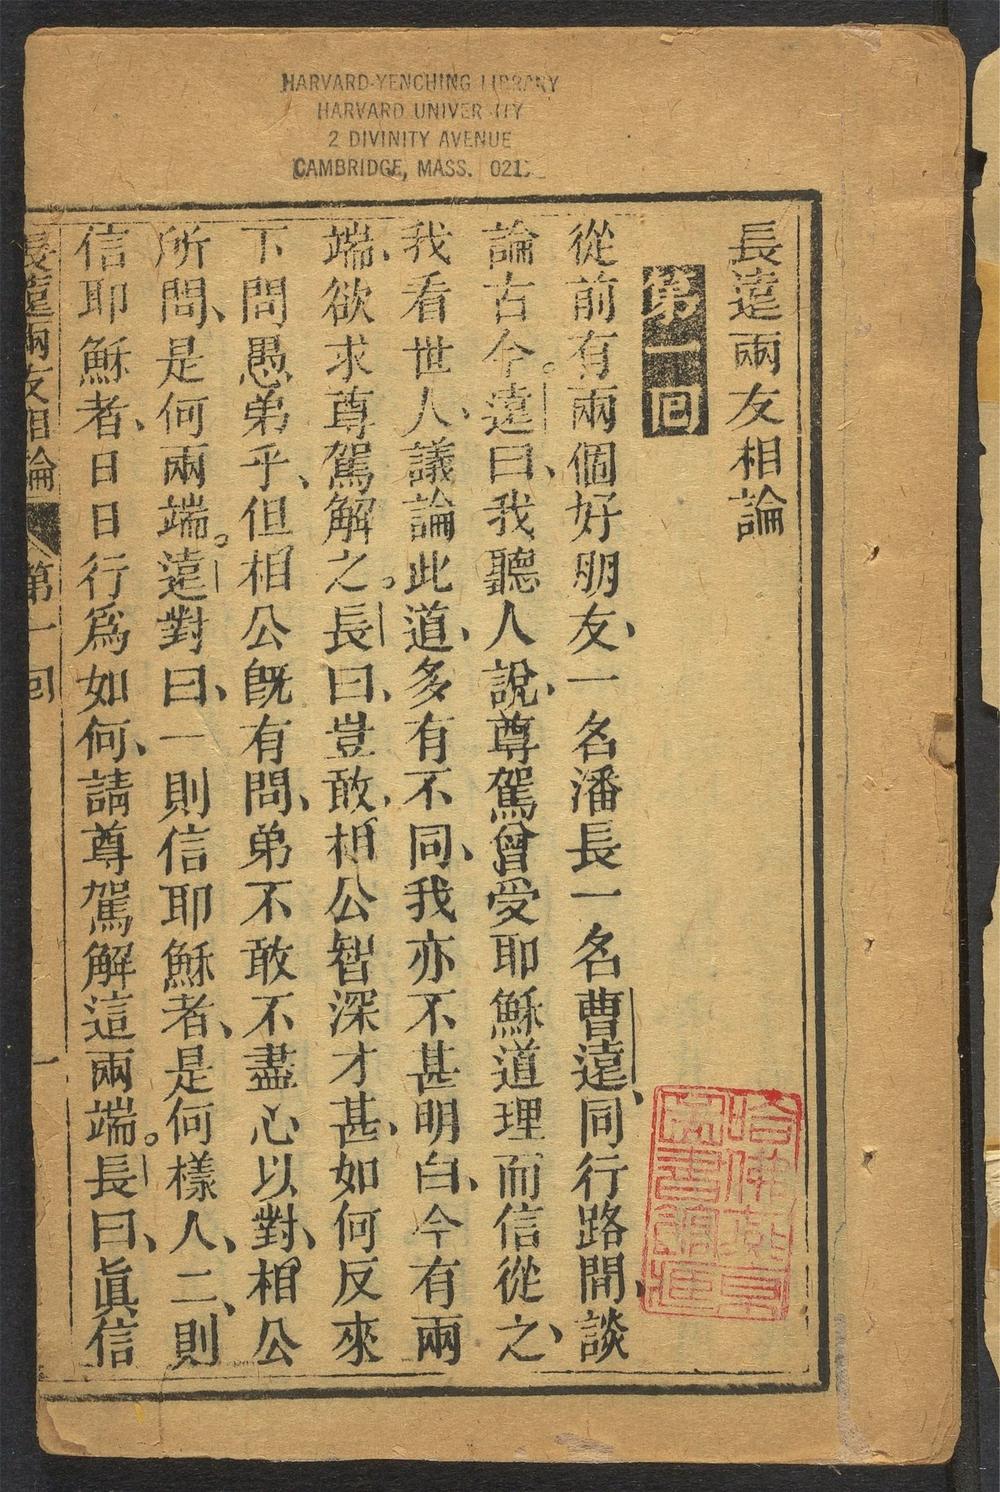 HARVARD-YENCHING LIBRARY
HARVARD UNIVERSITY
2 DIVINITY AVENUE
CAMBRIDGE, MASS. 021
長遠兩友相論
第一回
從前有兩個好朋友、一名潘長一名曹遠、同行路間、談
論古今。遠曰、我聽人說、尊駕曾受耶穌道理而信從之、
我看世人、議論此道、多有不同、我亦不甚明白、今有兩
端、欲求尊駕解之。長曰、豈敢、相公智深才甚、如何反來
下問愚弟乎、但相公既有問、弟不敢不盡心以對、相公
所問、是何兩端。遠對曰、一則信耶穌者、是何樣人、二則
信耶穌者、日日行爲如何、請尊駕解這兩端。長曰、眞信
長遠兩友相論 第一回 一
哈佛燕京
圖書館